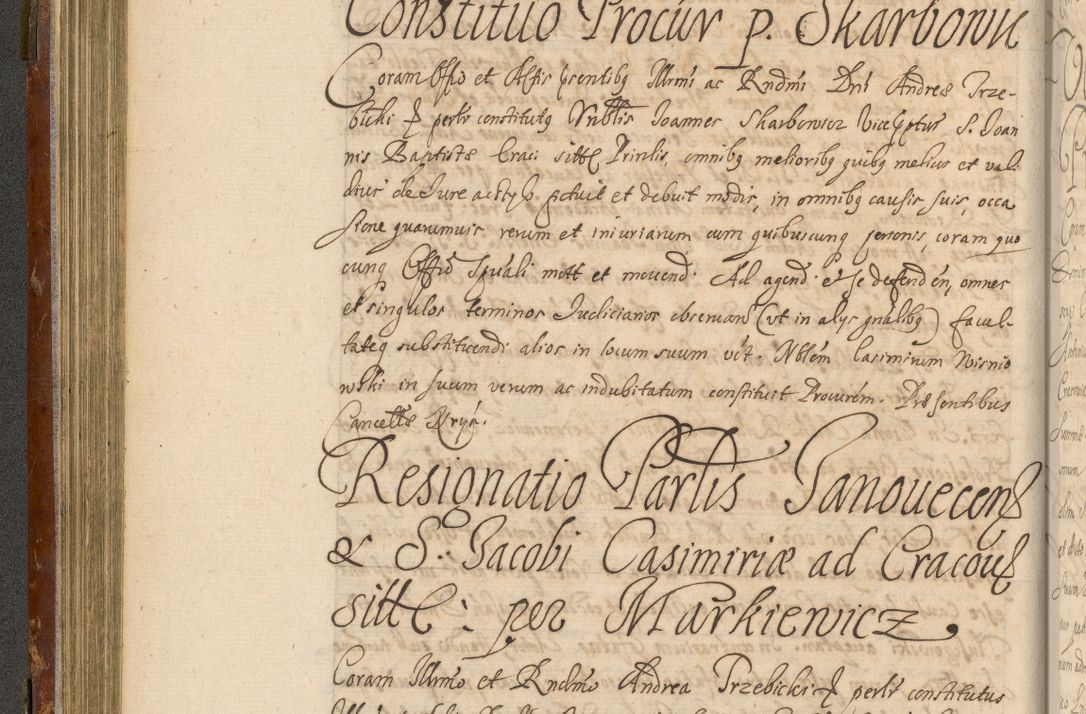 Constituo Procur p. Skarbowic
Coram Offo et Actis prentibq Illrmi ac Rndmi Dni Andreæ Trze-
bicki perlr constitutq Nblis Joannes Skarbowicz Vicescptus S. Joan
nis Baptistæ Craci sitte Prinlis, omnibq melioribq quibq melius et vali
dius de Jure ac stylo potuit et debuit modis, in omnibq causis suis, occa
sione quarumuis rerum et iniuriarum cum quibuscunq personis, coram quo
cunq Offio Spuali mott et movend. Ad agend. et se defenden, omnes
et singulos terminos Judiciarios obseruan (vt in alys gnalibq) facul-
tateq substituendi alios in locum suum vct. Nblem Casimirum Wisnio
wski in suum verum ac indubitatum constituit Procurem. Præsentibus
Cancellæ Nrys.
Resignatio Parlis Janouecens
& S. Jacobi Casimiriæ ad Cracou
sitte: per Markiewicz
Coram Illrmo et Rndmo Andrea Trzebicki perlr constitutus